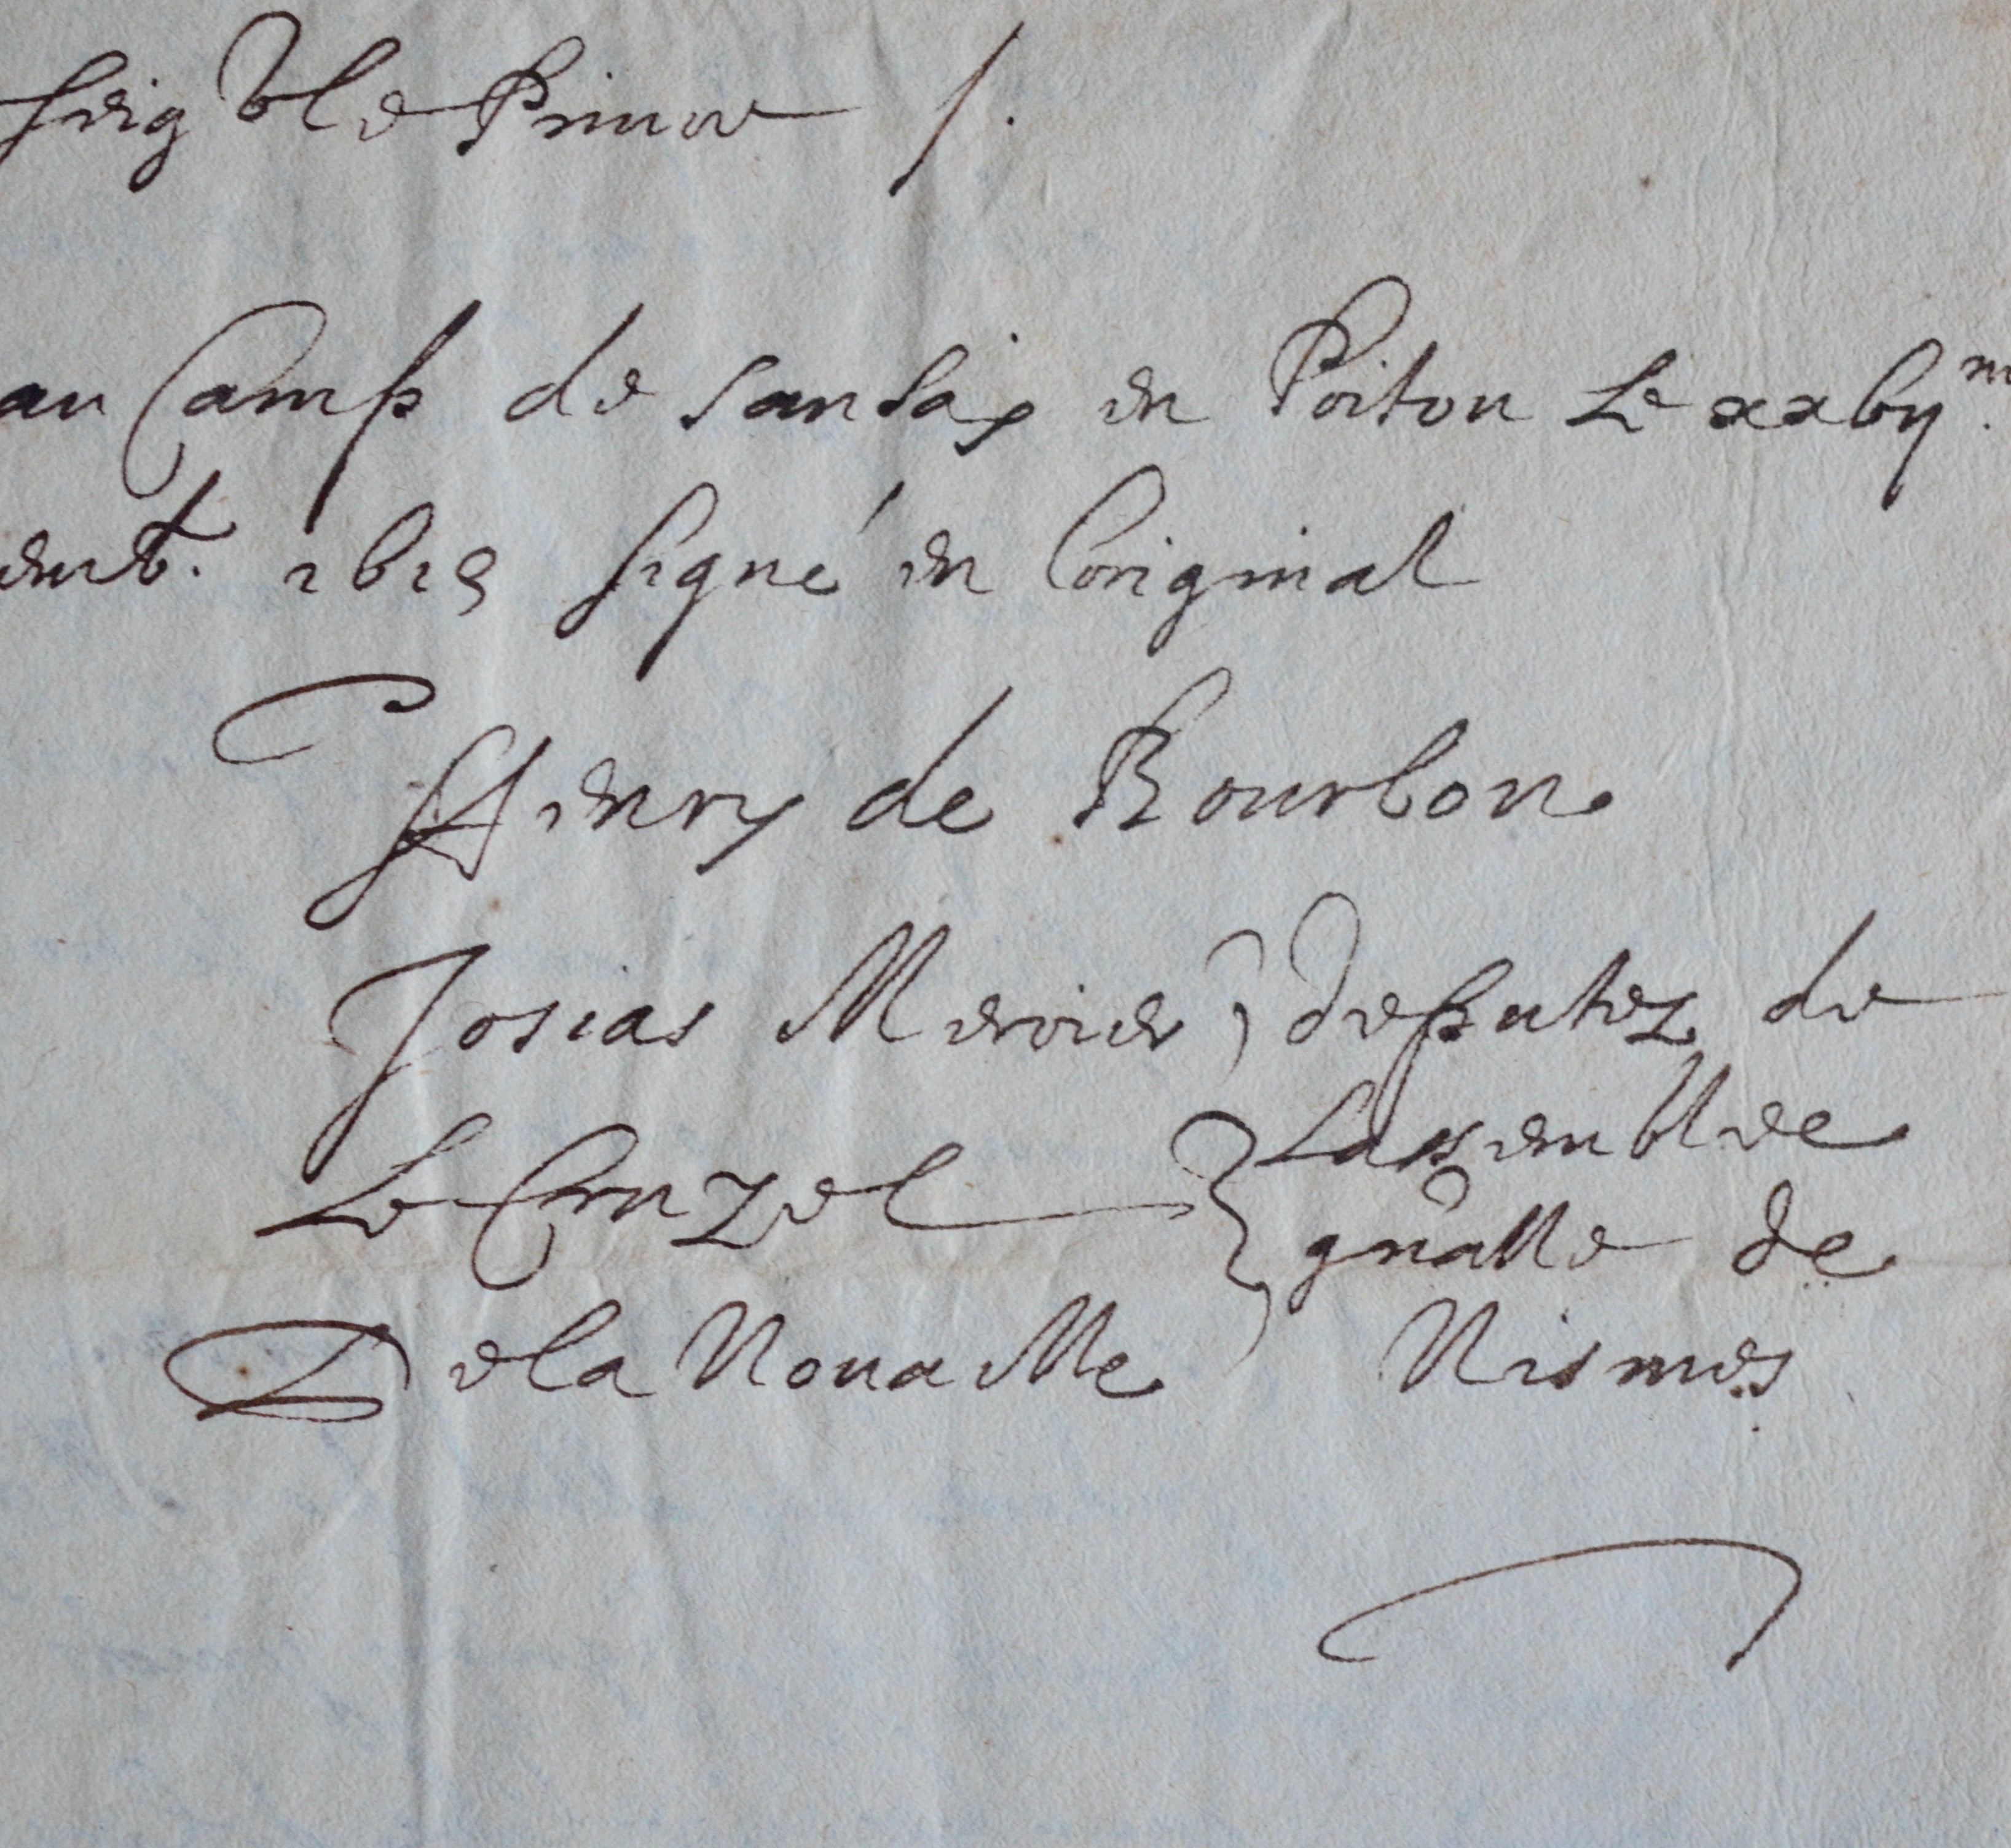 seigr le Prince /.
au Camp de Sansay en Poitou Le xxvijm.
emb. 1615 signé en Loriginal
Henry de Bourbon
Josias Mercier deputez de
Le Cruzel Lassemblee
gnalle de
De la Nouaille Nismes